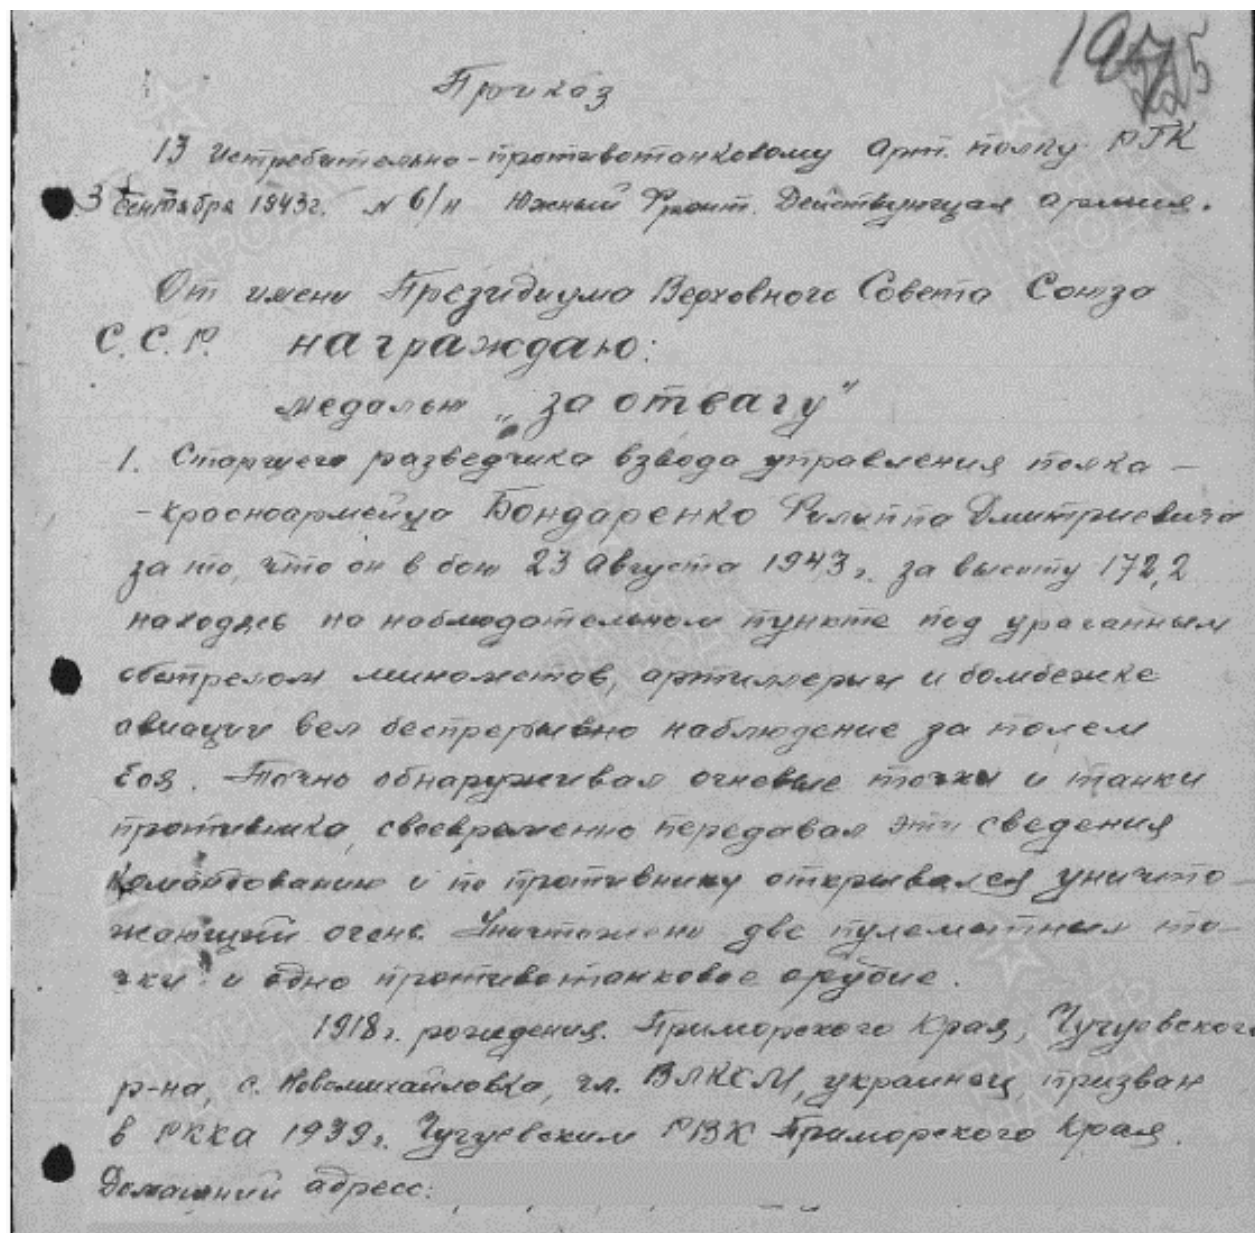 Приказ
13 Истребительно-противотанковому Арт. полку РГК
3 Сентября 1943г. № б/н Южный Фронт. Действующая армия.
От имени Президиума Верховного Совета Союза
С.С.Р. награждаю:
медалью „за отвагу"
1. Старшего разведчика взвода управления полка –
- красноармейца Бондаренко Филиппа Дмитриевича
за то, что он в бою 23 августа 1943г. за высоту 172,2
находясь на наблюдательном пункте под ураганным
обстрелом минометов, артиллерии и бомбежке
авиации вел беспрерывно наблюдение за полем
боя. Точно обнаруживал огневые точки и танки
противника, своевременно передавал эти сведения
командованию и по противнику открывался уничто-
жающий огень. Уничтожено две пулеметных то-
чки и одно противотанковое орудие.
1918г. рождения. Приморского Края, Чугуевского
р-на, с. Новомихайловка, чл. ВЛКСМ, украинец, призван
в РККА 1939г. Чугуевским РВК Приморского Края.
Домашний адресс: